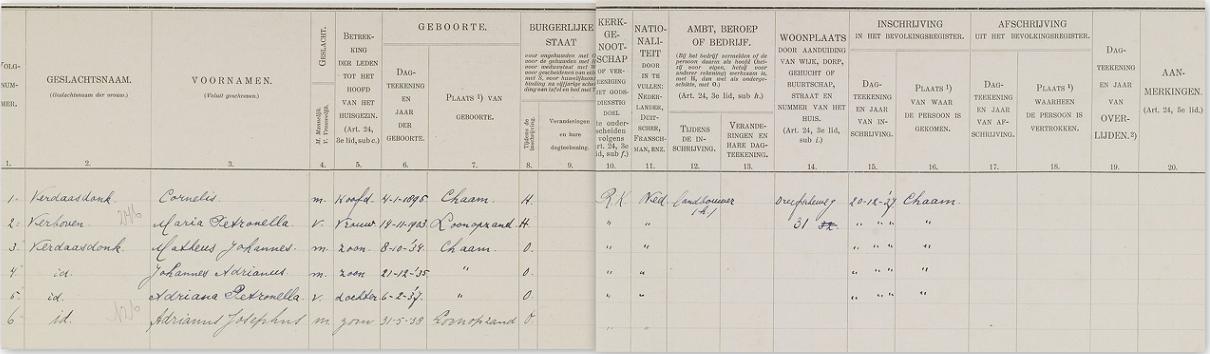 GEBOORTE.
BURGERLIJKE
STAAT
KERK-
GE-
NOOT-
SCHAP
NATIO-
NALI-
TEIT
AMBT, BEROEP
OF BEDRIJF.
(Art. 24, 3e lid, sub h.)
WOONPLAATS
DOOR AANDUIDING
VAN WIJK, DORP,
GEHUCHT OF
BUURTSCHAP,
STRAAT EN
NUMMER VAN HET
HUIS.
(Art. 24, 3e lid,
sub i.)
INSCHRIJVING
IN HET BEVOLKINGSREGISTER.
AFSCHRIJVING
UIT HET BEVOLKINGSREGISTER.
DAG-
TEEKENING
EN JAAR
VAN
OVER-
LIJDEN.²)
AAN-
MERKINGEN.
(Art. 24, 3e lid.)
VOLG-
NUM-
MER.
GESLACHTSNAAM.
(Geslachtsnaam der vrouw.)
VOORNAMEN.
(Voluit geschreven.)
GESLACHT.
M. Mannelijk.
V. Vrouwelijk.
BETREK-
KING
DER LEDEN
TOT HET
HOOFD
VAN HET
HUISGEZIN.
(Art. 24,
3e lid, sub c.)
DAG-
TEEKENING
EN
JAAR
DER
GEBOORTE.
PLAATS ¹) VAN
GEBOORTE.
Tijdens de
inschrijving.
Veranderingen
en hare
dagteekening.
OF VER-
EENIGING
MET GODS-
DIENSTIG
DOEL
DOOR
IN TE
VULLEN:
NEDER-
LANDER,
DUIT-
SCHER,
FRANSCH-
MAN, ENZ.
TIJDENS
DE IN-
SCHRIJVING.
VERANDE-
RINGEN EN
HARE DAG-
TEEKENING.
DAG-
TEEKENING
EN JAAR
VAN IN-
SCHRIJVING.
PLAATS ¹)
VAN WAAR
DE PERSOON IS
GEKOMEN.
DAG-
TEEKENING
EN JAAR
VAN AF-
SCHRIJVING.
PLAATS ¹)
WAARHEEN
DE PERSOON IS
VERTROKKEN.
1. 2. 3. 4. 5. 6. 7. 8. 9. 10. 11. 12. 13. 14. 15. 16. 17. 18. 19. 20.
1. Verdaasdonk. Cornelis. m. Hoofd. 4-1-1895 Chaam. H. R.K. Ned. Landbouwer (h) 20-12-'37 Chaam.
2. Verhoven. Maria Petronella. v. Vrouw 19-11-1903 Loonopzand. H. " " 31 " " " "
3. Verdaasdonk. Matheus Johannes. m. zoon. 8-10-'34. Chaam. O. " " " " " "
4. id. Johannes Adrianus. m. zoon 21-12-'35 " O. " " " " " "
5. id. Adriana Petronella. v. dochter 6-2-'37. " O. " " " " " "
6 id. Adrianus Josephus m. zoon 31-5-38 Loonopzand O. " "